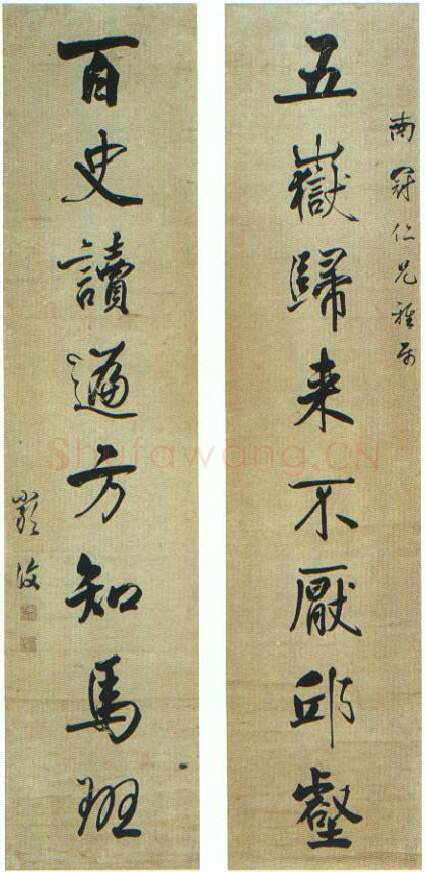 南
仁兄雅屬
五嶽歸来不厭邱壑
百史讀遍方知馬班
Shufawang.CN